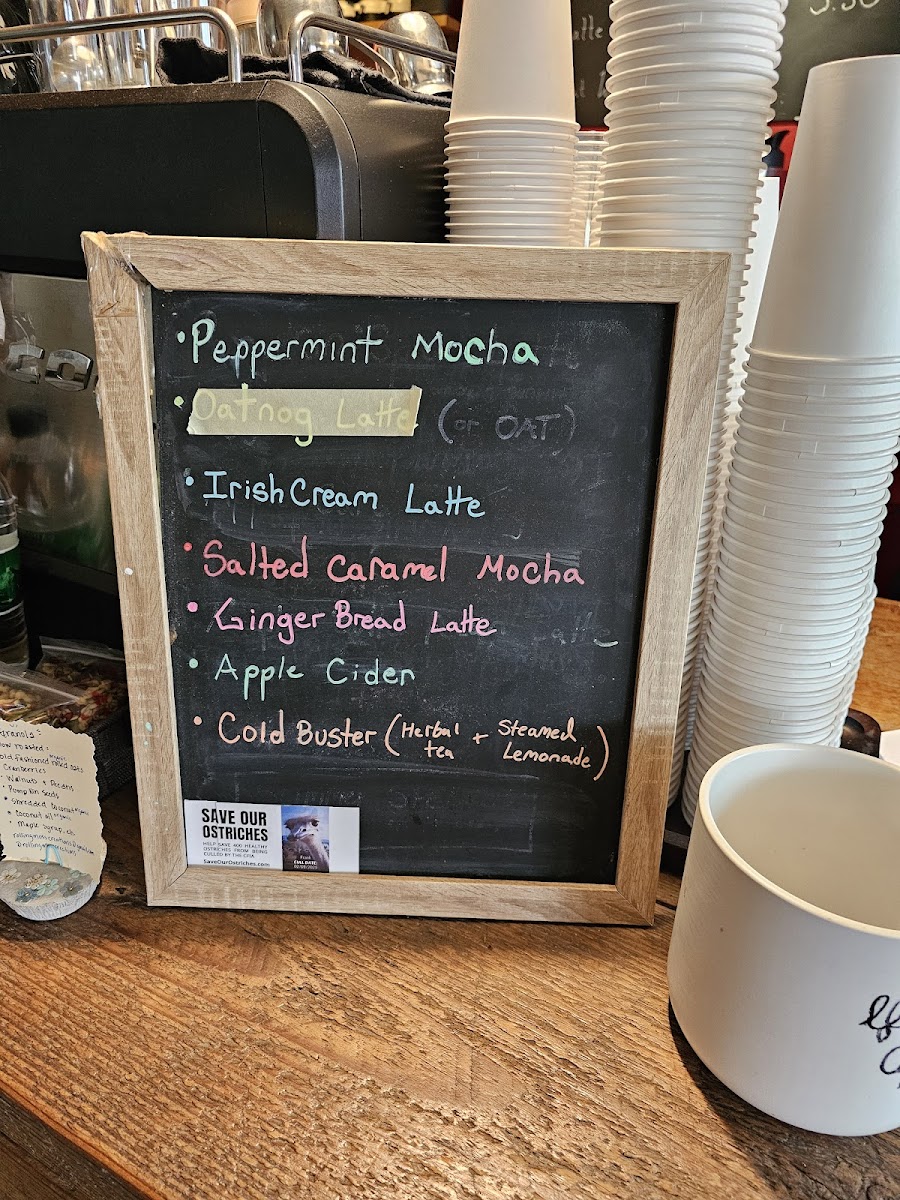 • Peppermint Mocha
• Oatnog Latte (or OAT)
• Irish Cream Latte
• Salted Caramel Mocha
• Ginger Bread Latte
• Apple Cider
• Cold Buster (Herbal tea + Steamed Lemonade)
SAVE OUR
OSTRICHES
HELP SAVE 400 HEALTHY
OSTRICHES FROM BEING
CULLED BY THE CFIA
SaveOurOstriches.com
Frank
CULL DATE:
granola:
Cranberries
Walnut + Pecans
Pumpkin Seeds
Shredded Coconut
Coconut oil
Maple Syrup